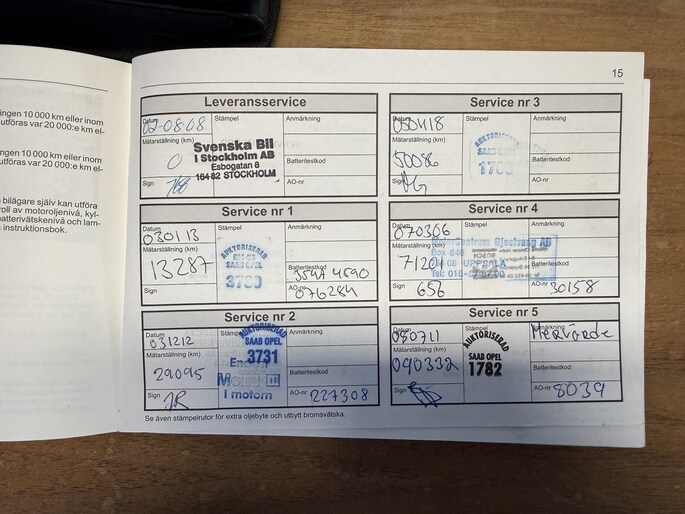 15
ningen 10 000 km eller inom
utföras var 20 000:e km el-
ningen 10 000 km eller inom
utföras var 20 000:e km el-
bilägare själv kan utföra
roll av motoroljenivå, kyl-
batterivätskenivå och lam-
instruktionsbok.
Leveransservice
Datum
02-08-08
Stämpel
Anmärkning
Mätarställning (km)
0
Svenska Bil
i Stockholm AB
Esbogatan 8
164 82 STOCKHOLM
Batteritestkod
Sign
AO-nr
Service nr 1
Datum
030113
Stämpel
Anmärkning
Mätarställning (km)
13287
AUKTORISERAD
SAAB OPEL
Sign
AO-nr
076284
Service nr 2
Datum
031212
Stämpel
Anmärkning
Mätarställning (km)
29095
AUKTORISERAD
SAAB OPEL
3731
Mobil
I motorn
Batteritestkod
Sign
JR
AO-nr
R227308
Se även stämpelrutor för extra oljebyte och utbytt bromsvätska.
Service nr 3
Datum
050418
Stämpel
Anmärkning
Mätarställning (km)
50086
AUKTORISERAD
Batteritestkod
Sign
AO-nr
Service nr 4
Datum
070306
Stämpel
Anmärkning
Mätarställning (km)
71201
Box 846
UPPSALA
Tel: 018-
Sign
656
AO-nr
30158
Service nr 5
Datum
080711
Stämpel
Anmärkning
Mätarställning (km)
090332
AUKTORISERAD
SAAB OPEL
1782
Batteritestkod
Sign
AO-nr
8039